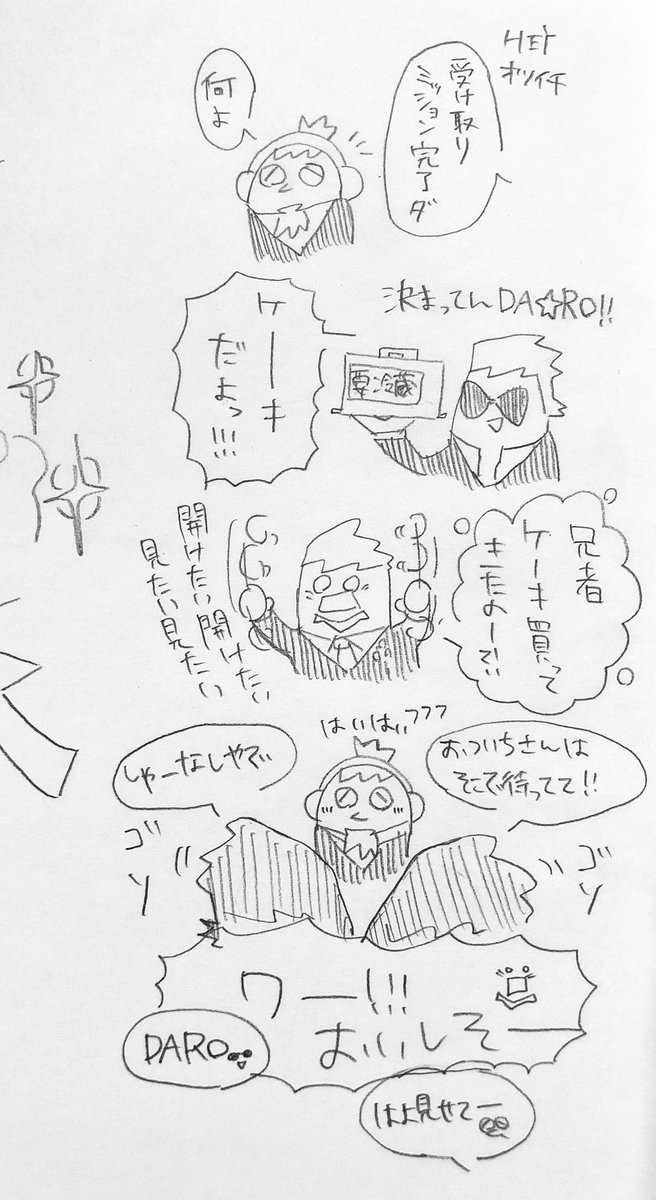 HEY
オツイチ
受け取り
ミッション完了ダ
何よ
決まってんDA☆RO!!
ケーキ
だよっ!!!
要冷蔵
兄者
ケーキ買って
きたよーで!!
開けたい開けたい
見たい見たい
はいはいフフフ
おついちさんは
そこで待ってて!!
しゃーなしやで
ゴソ
ゴソ
ワー!!!
おいしそー
DARO
はよ見せてー